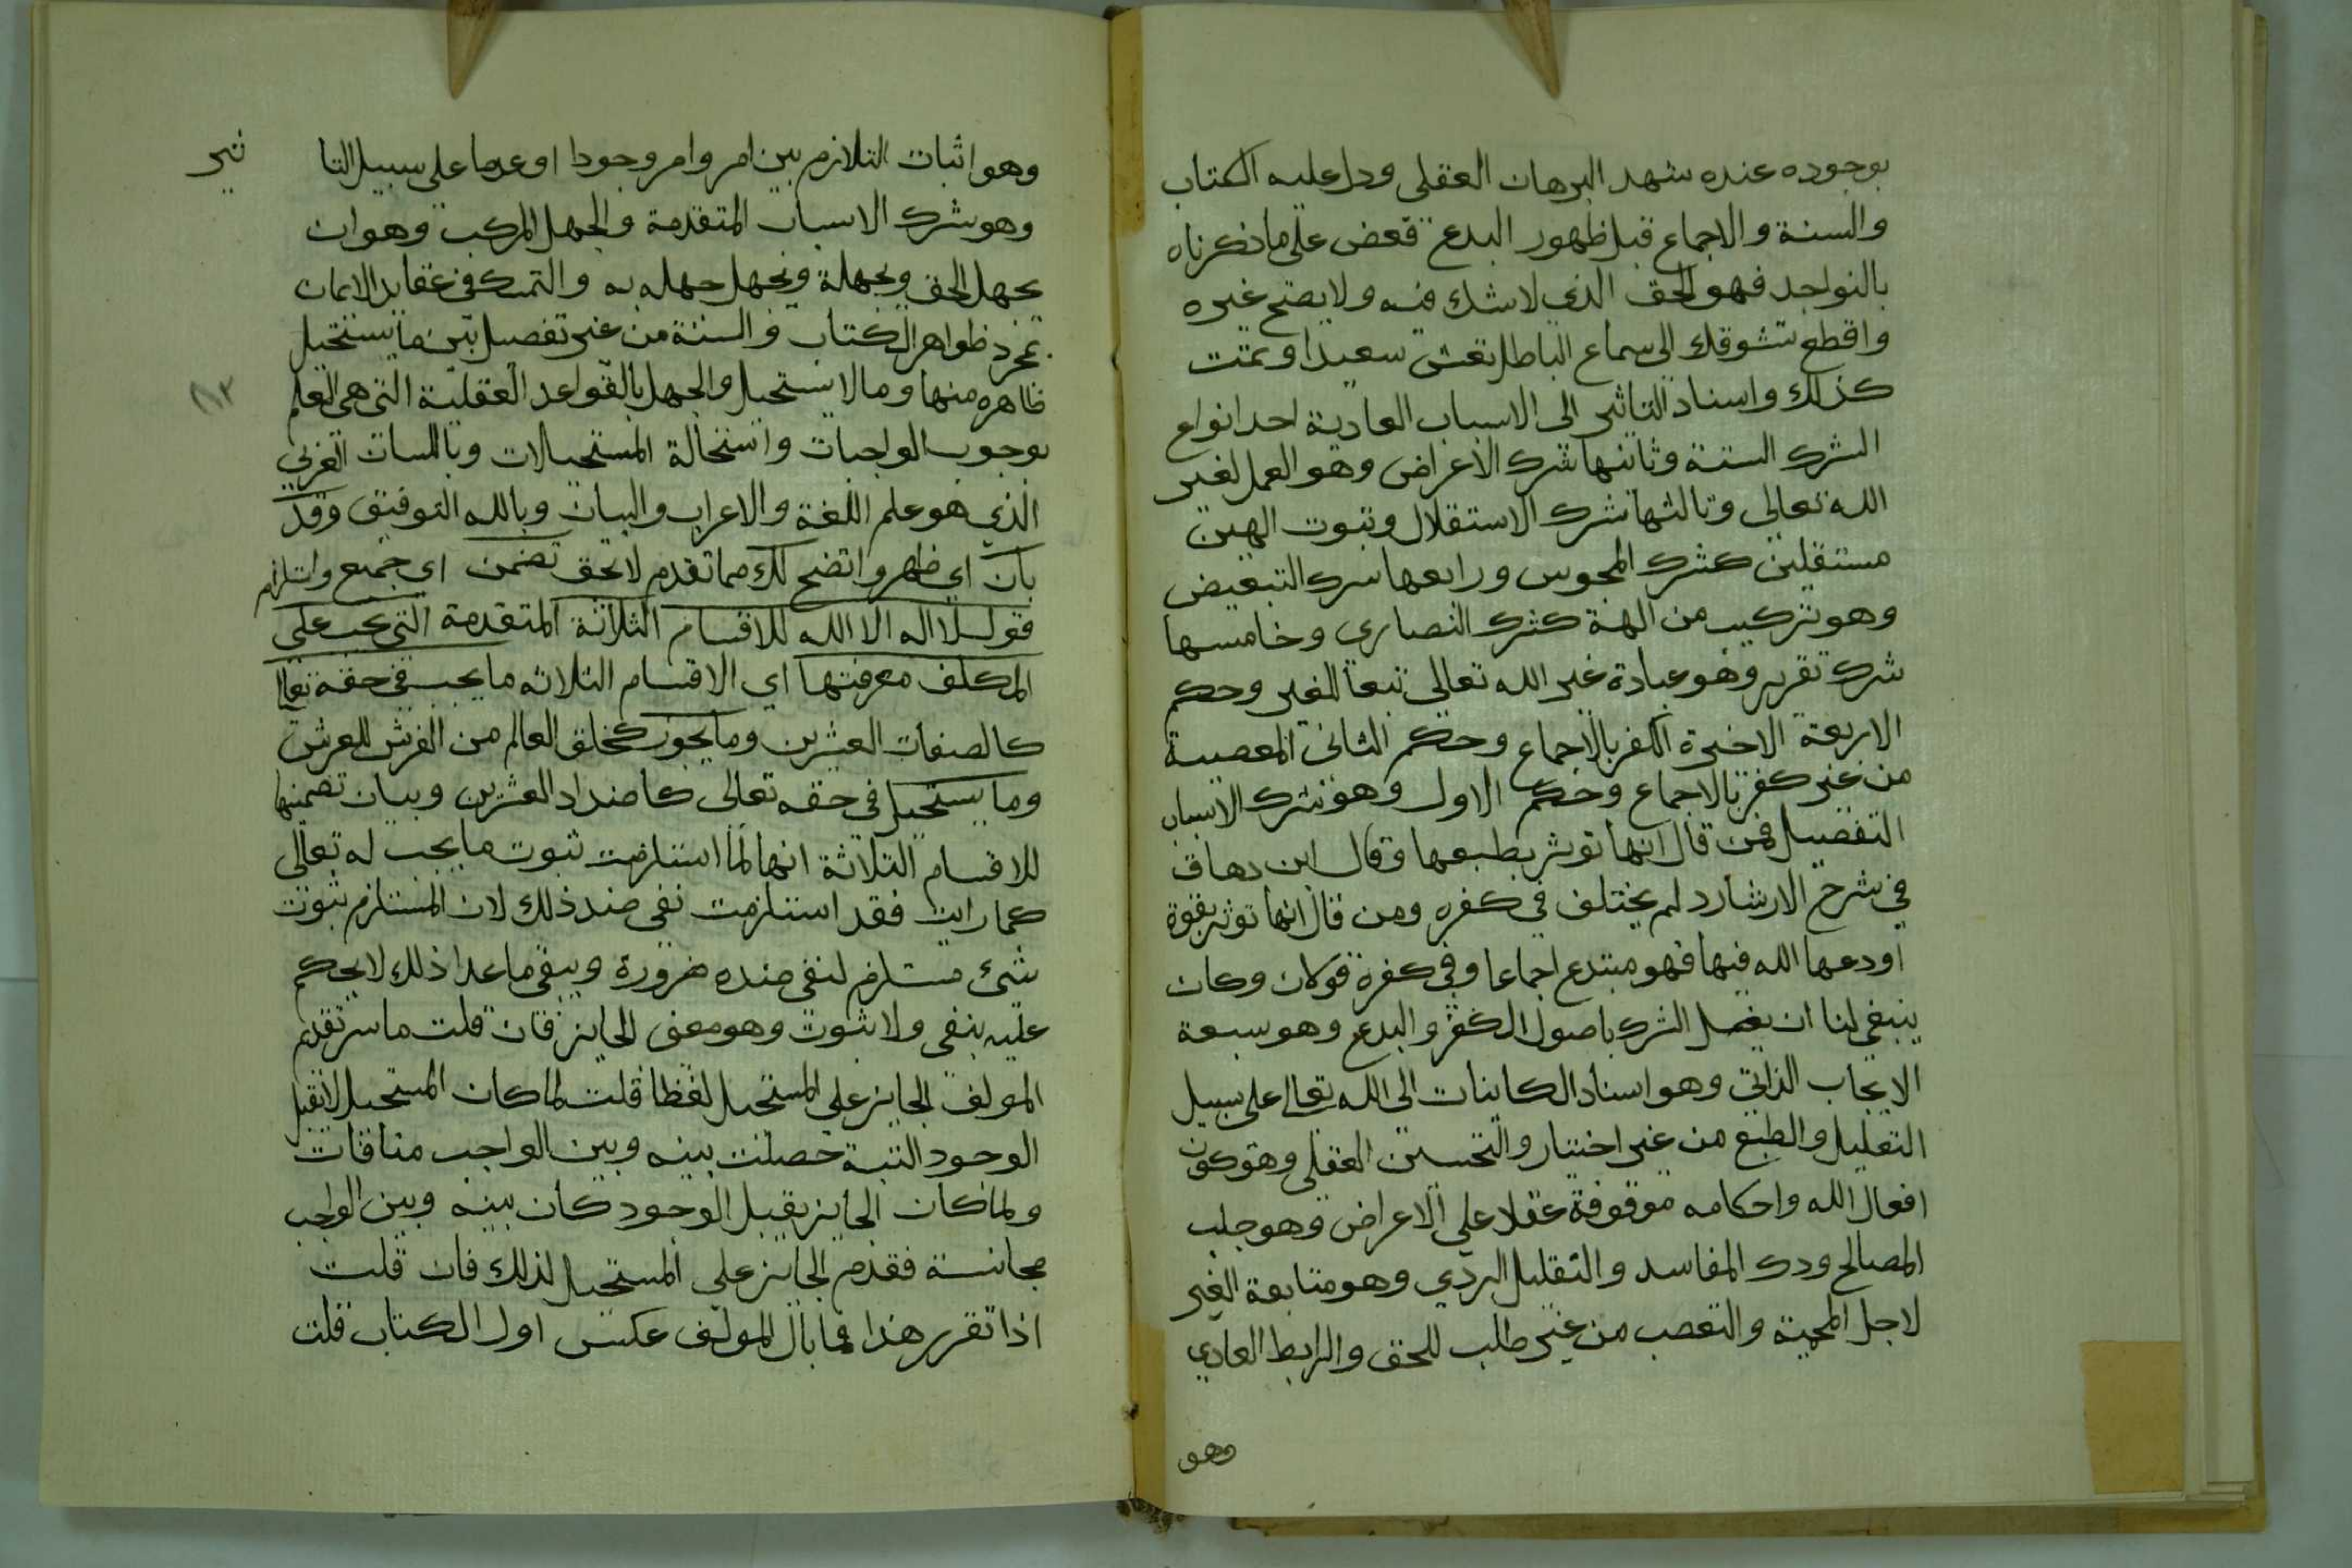 بوجوده عنده شهد البرهان العقلى ودل عليه الكتاب
والسنة والاجماع قبل ظهور البدع فعض على ما ذكرناه
بالنواجد فهو الحق الذي لا شك فيه ولا يصح غيره
واقطع تشوقك الى سماع الباطل تعش سعيدا وتمت
كذلك واسناد التاثير الى الاسباب العادية احد انواع
الشرك الستة وثانيها شرك الاعراض وهو العمل لغير
الله تعالى وثالثها شرك الاستقلال وثبوت الهين
مستقلين كشرك المجوس ورابعها شرك التبعيض
وهو تركيب من الهة كشرك النصاري وخامسها
شرك تقرير وهو عبادة غير الله تعالى تبعا للغير وحكم
الاربعة الاخيرة الكفر بالاجماع وحكم الثانى المعصية
من غير كفر بالاجماع وحكم الاول وهو شرك الاسباب
التفصيل فمن قال انها توثر بطبعها وقال ابن دهاق
في شرح الارشارد لم يختلف في كفره ومن قال انها توثر بقوة
اودعها الله فيها فهو مبتدع اجماعا وفي كفره قولان وكان
ينبغي لنا ان نفصل الشرك باصول الكفر والبدع وهو سبعة
الايجاب الذاتي وهو اسناد الكاينات الى الله تعالى على سبيل
التعليل والطبع من غير اختيار والتحسين العقلي وهو كون
افعال الله واحكامه موقوفة عقلا على الاعراض وهو جلب
المصالح ودرء المفاسد والتقليل الردي وهو متابعة الغير
لاجل المحية والتعصب من غير طلب للحق والرابط العادي
وهو
وهو اثبات التلازم بين امر وامر وجودا او عدما على سبيل التا
ثير
وهو شرك الاسباب المتقدمة والجهل المركب وهو ان
يجهل الحق ويجهله ويجهل جهله به والتمسك في عقايد الايمان
بمجرد ظواهر الكتاب والسنة من غير تفصيل بين ما يستحيل
ظاهره منها وما لا يستحيل والجهل بالقواعد العقلية التى هي العلم
١٣
بوجوب الواجبات واستحالة المستحيلات وباللسان العربي
الذي هو علم اللغة والاعراب والبيان وبالله التوفيق وقد
بان اي ظهر واتضح لك مما تقدم لا تحق تضمن اي جميع واستلزام
قول لا اله الا الله للاقسام الثلاثة المتقدمة التى يجب على
المكلف معرفتها اي الاقسام الثلاثه ما يجب في حقه تعالى
كالصفات العشرين وما يجوز كخلق العالم من الفرش للعرش
وما يستحيل في حقه تعالى كاضداد العشرين وبيان تضمنها
للاقسام الثلاثة انها لما استلزمت ثبوت ما يجب له تعالى
كما رايت فقد استلزمت نفي ضد ذلك لان المستلزم ثبوت
شئ مستلزم لنفي ضده ضرورة ويبقى ما عدا ذلك لا يحكم
عليه بنفي ولا ثبوت وهو معنى الجايز فان قلت ما سر تقديم
المولف الجايز على المستحيل لفظا قلت لما كان المستحيل لا يقبل
الوجود البتية حصلت بينه وبين الواجب منافات
ولما كان الجايز يقبل الوجود كان بينه وبين الواجب
مجانسة فقدم الجايز على المستحيل لذلك فان قلت
اذا تقرر هذا فما بال المولف عكس اول الكتاب قلت